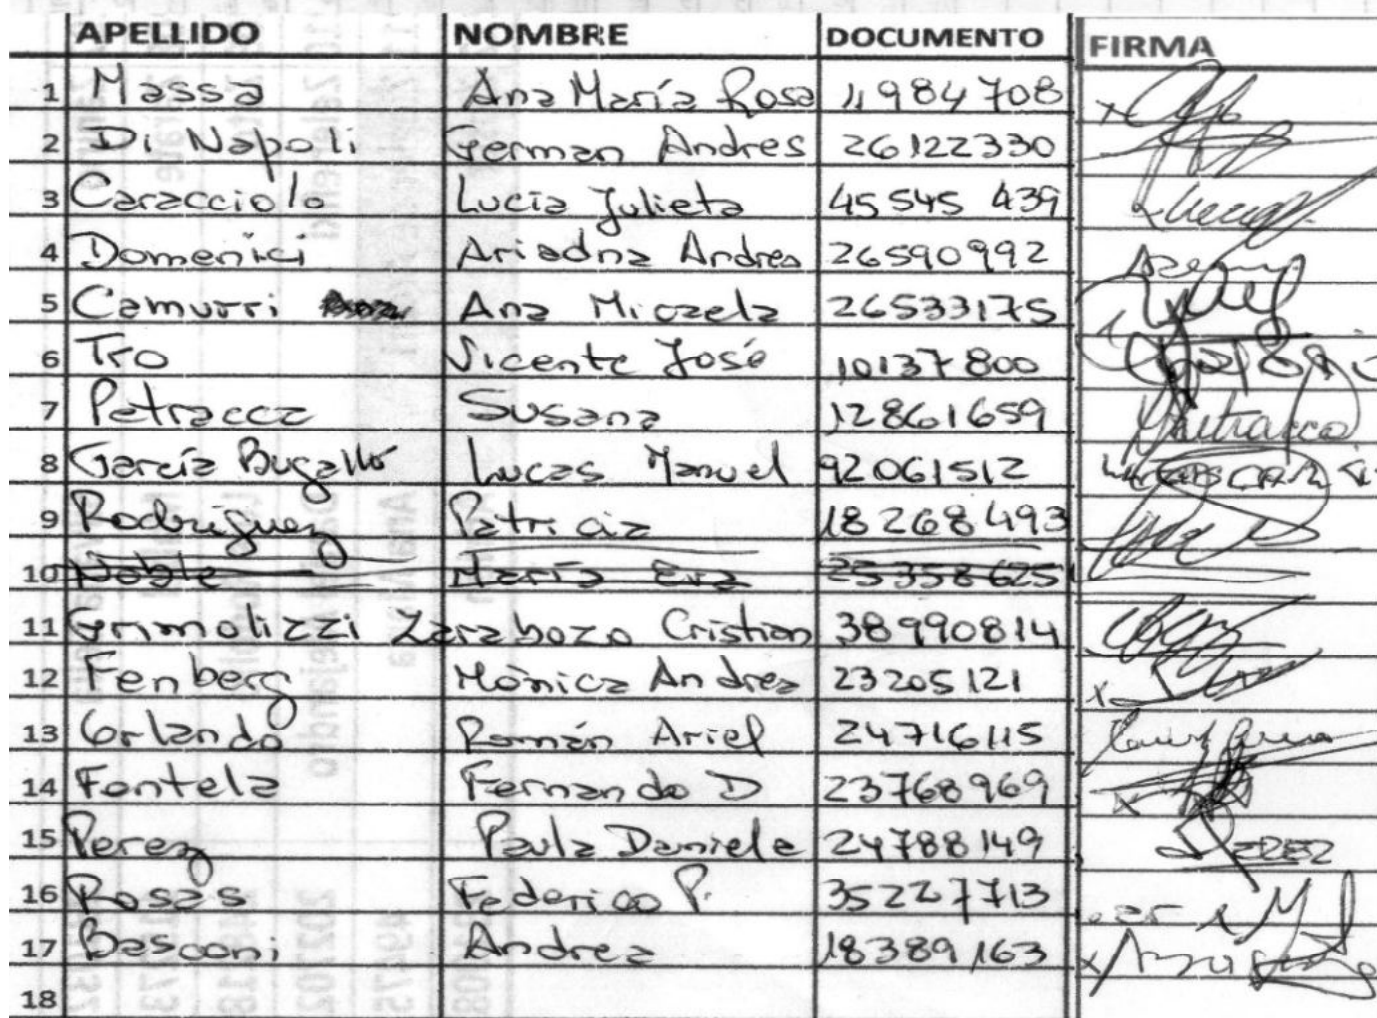 APELLIDO NOMBRE DOCUMENTO FIRMA
1 Massa Ana María Rosa 11984708
2 Di Napoli German Andres 26122330
3 Caracciolo Lucía Julieta 45545 439
4 Domenici Ariadna Andrea 26590992
5 Camurri Ana Micaela 26533175
6 Tro Vicente José 10137800
7 Petracca Susana 12861659
8 García Bugallo Lucas Manuel 92061512
9 Rodriguez Patricia 18268493
10 Noble María Eva 25358625
11 Grimolizzi Zarabozo Cristian 38990814
12 Fenberg Mónica Andrea 23205121
13 Orlando Román Ariel 24716115
14 Fontela Fernando D 23768969
15 Perez Paula Daniela 24788149 PEREZ
16 Rosas Federico P. 35227713
17 Basconi Andrea 18389163
18